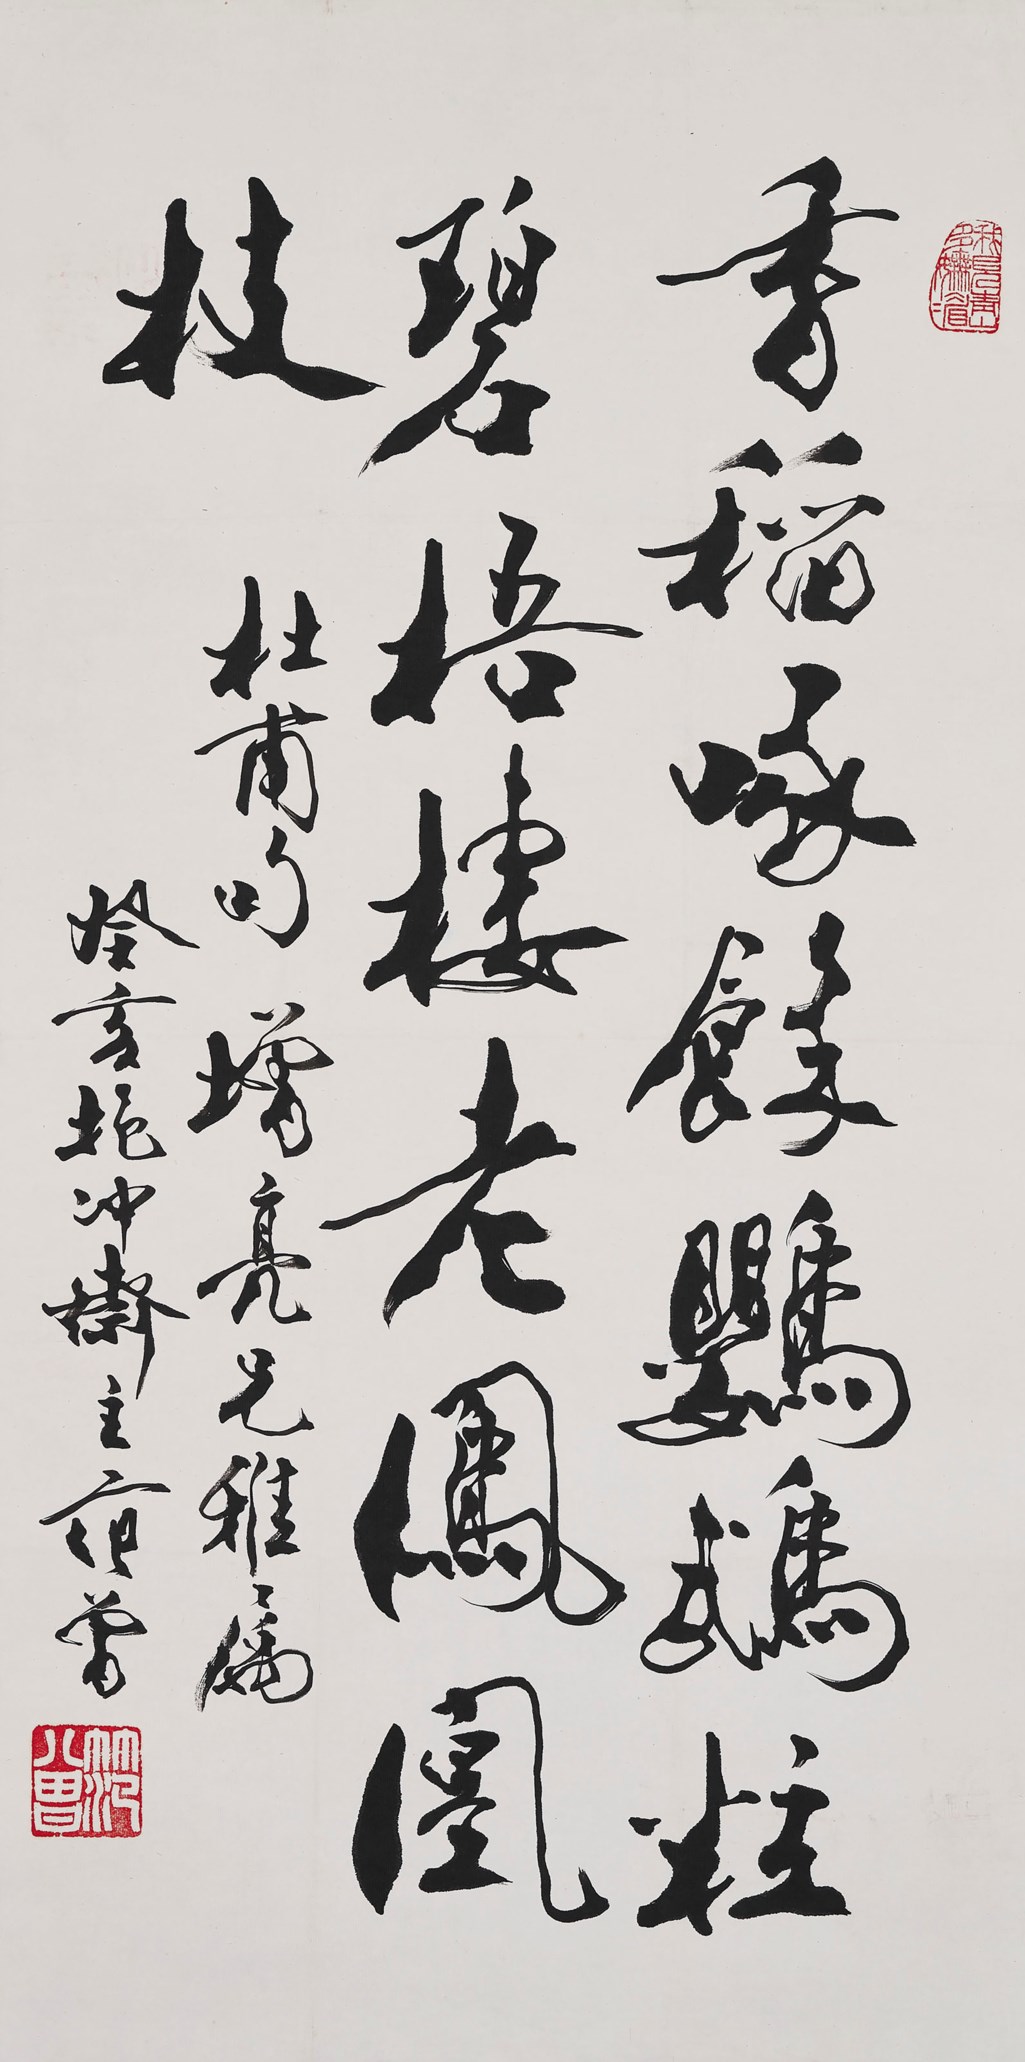 香稻啄餘鸚鵡粒
碧梧棲老鳳凰
枝
杜甫句 增亮兄雅屬
癸亥抱冲齋主范曾